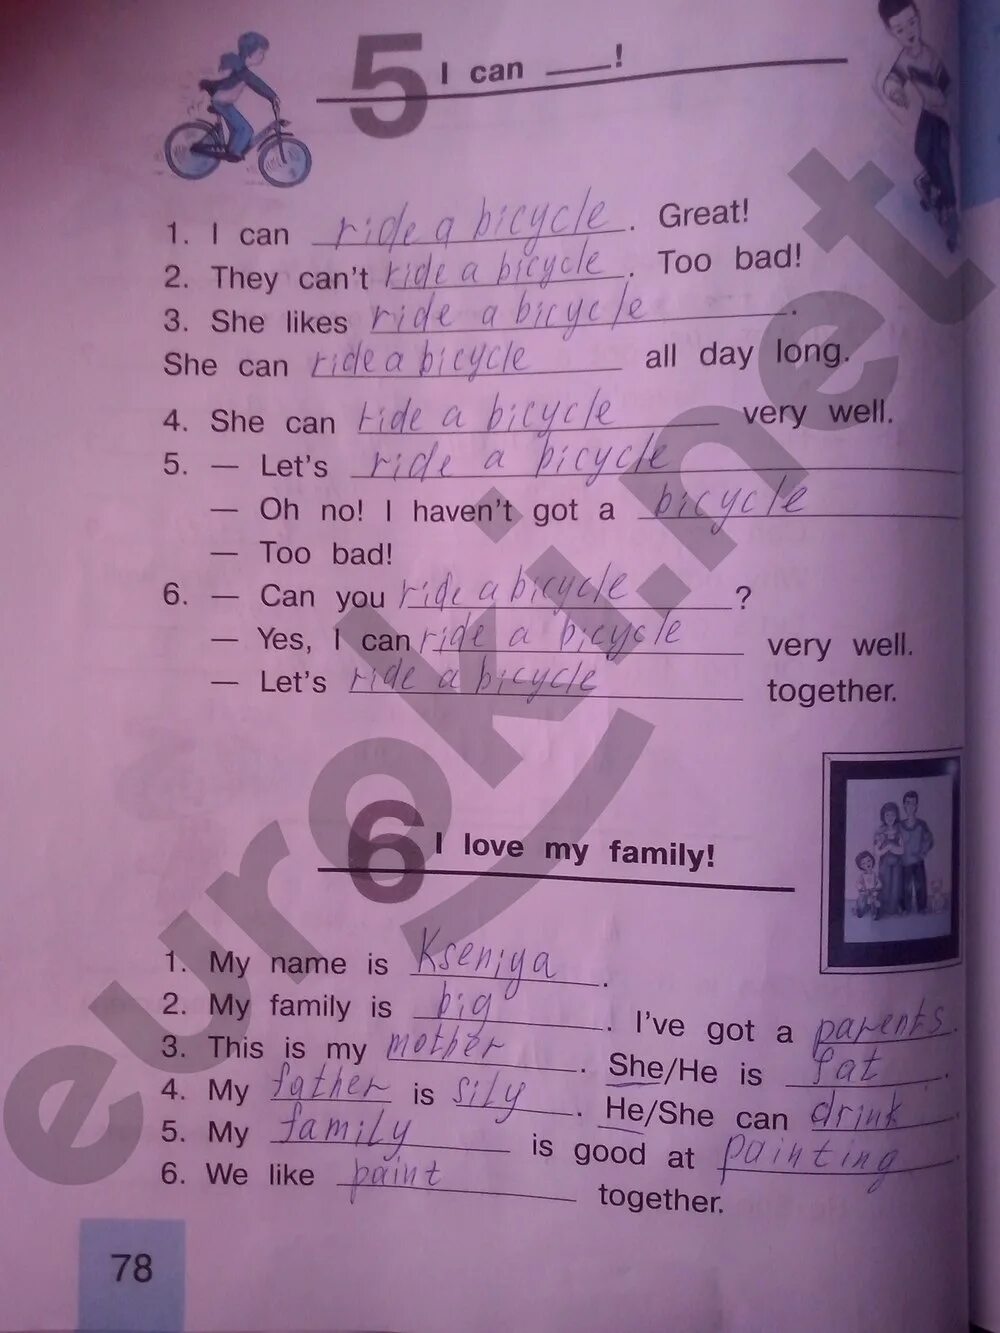 5 I can ___!
1. I can ride a bicycle. Great!
2. They can't ride a bicycle. Too bad!
3. She likes ride a bicycle.
She can ride a bicycle all day long.
4. She can ride a bicycle very well.
5. — Let's ride a bicycle
— Oh no! I haven't got a bicycle
— Too bad!
6. — Can you ride a bicycle?
— Yes, I can ride a bicycle very well.
— Let's ride a bicycle together.
6 I love my family!
1. My name is Kseniya.
2. My family is big. I've got a parents.
3. This is my mother. She/He is fat.
4. My father is sily. He/She can drink.
5. My family is good at painting.
6. We like paint together.
78
euroki.net